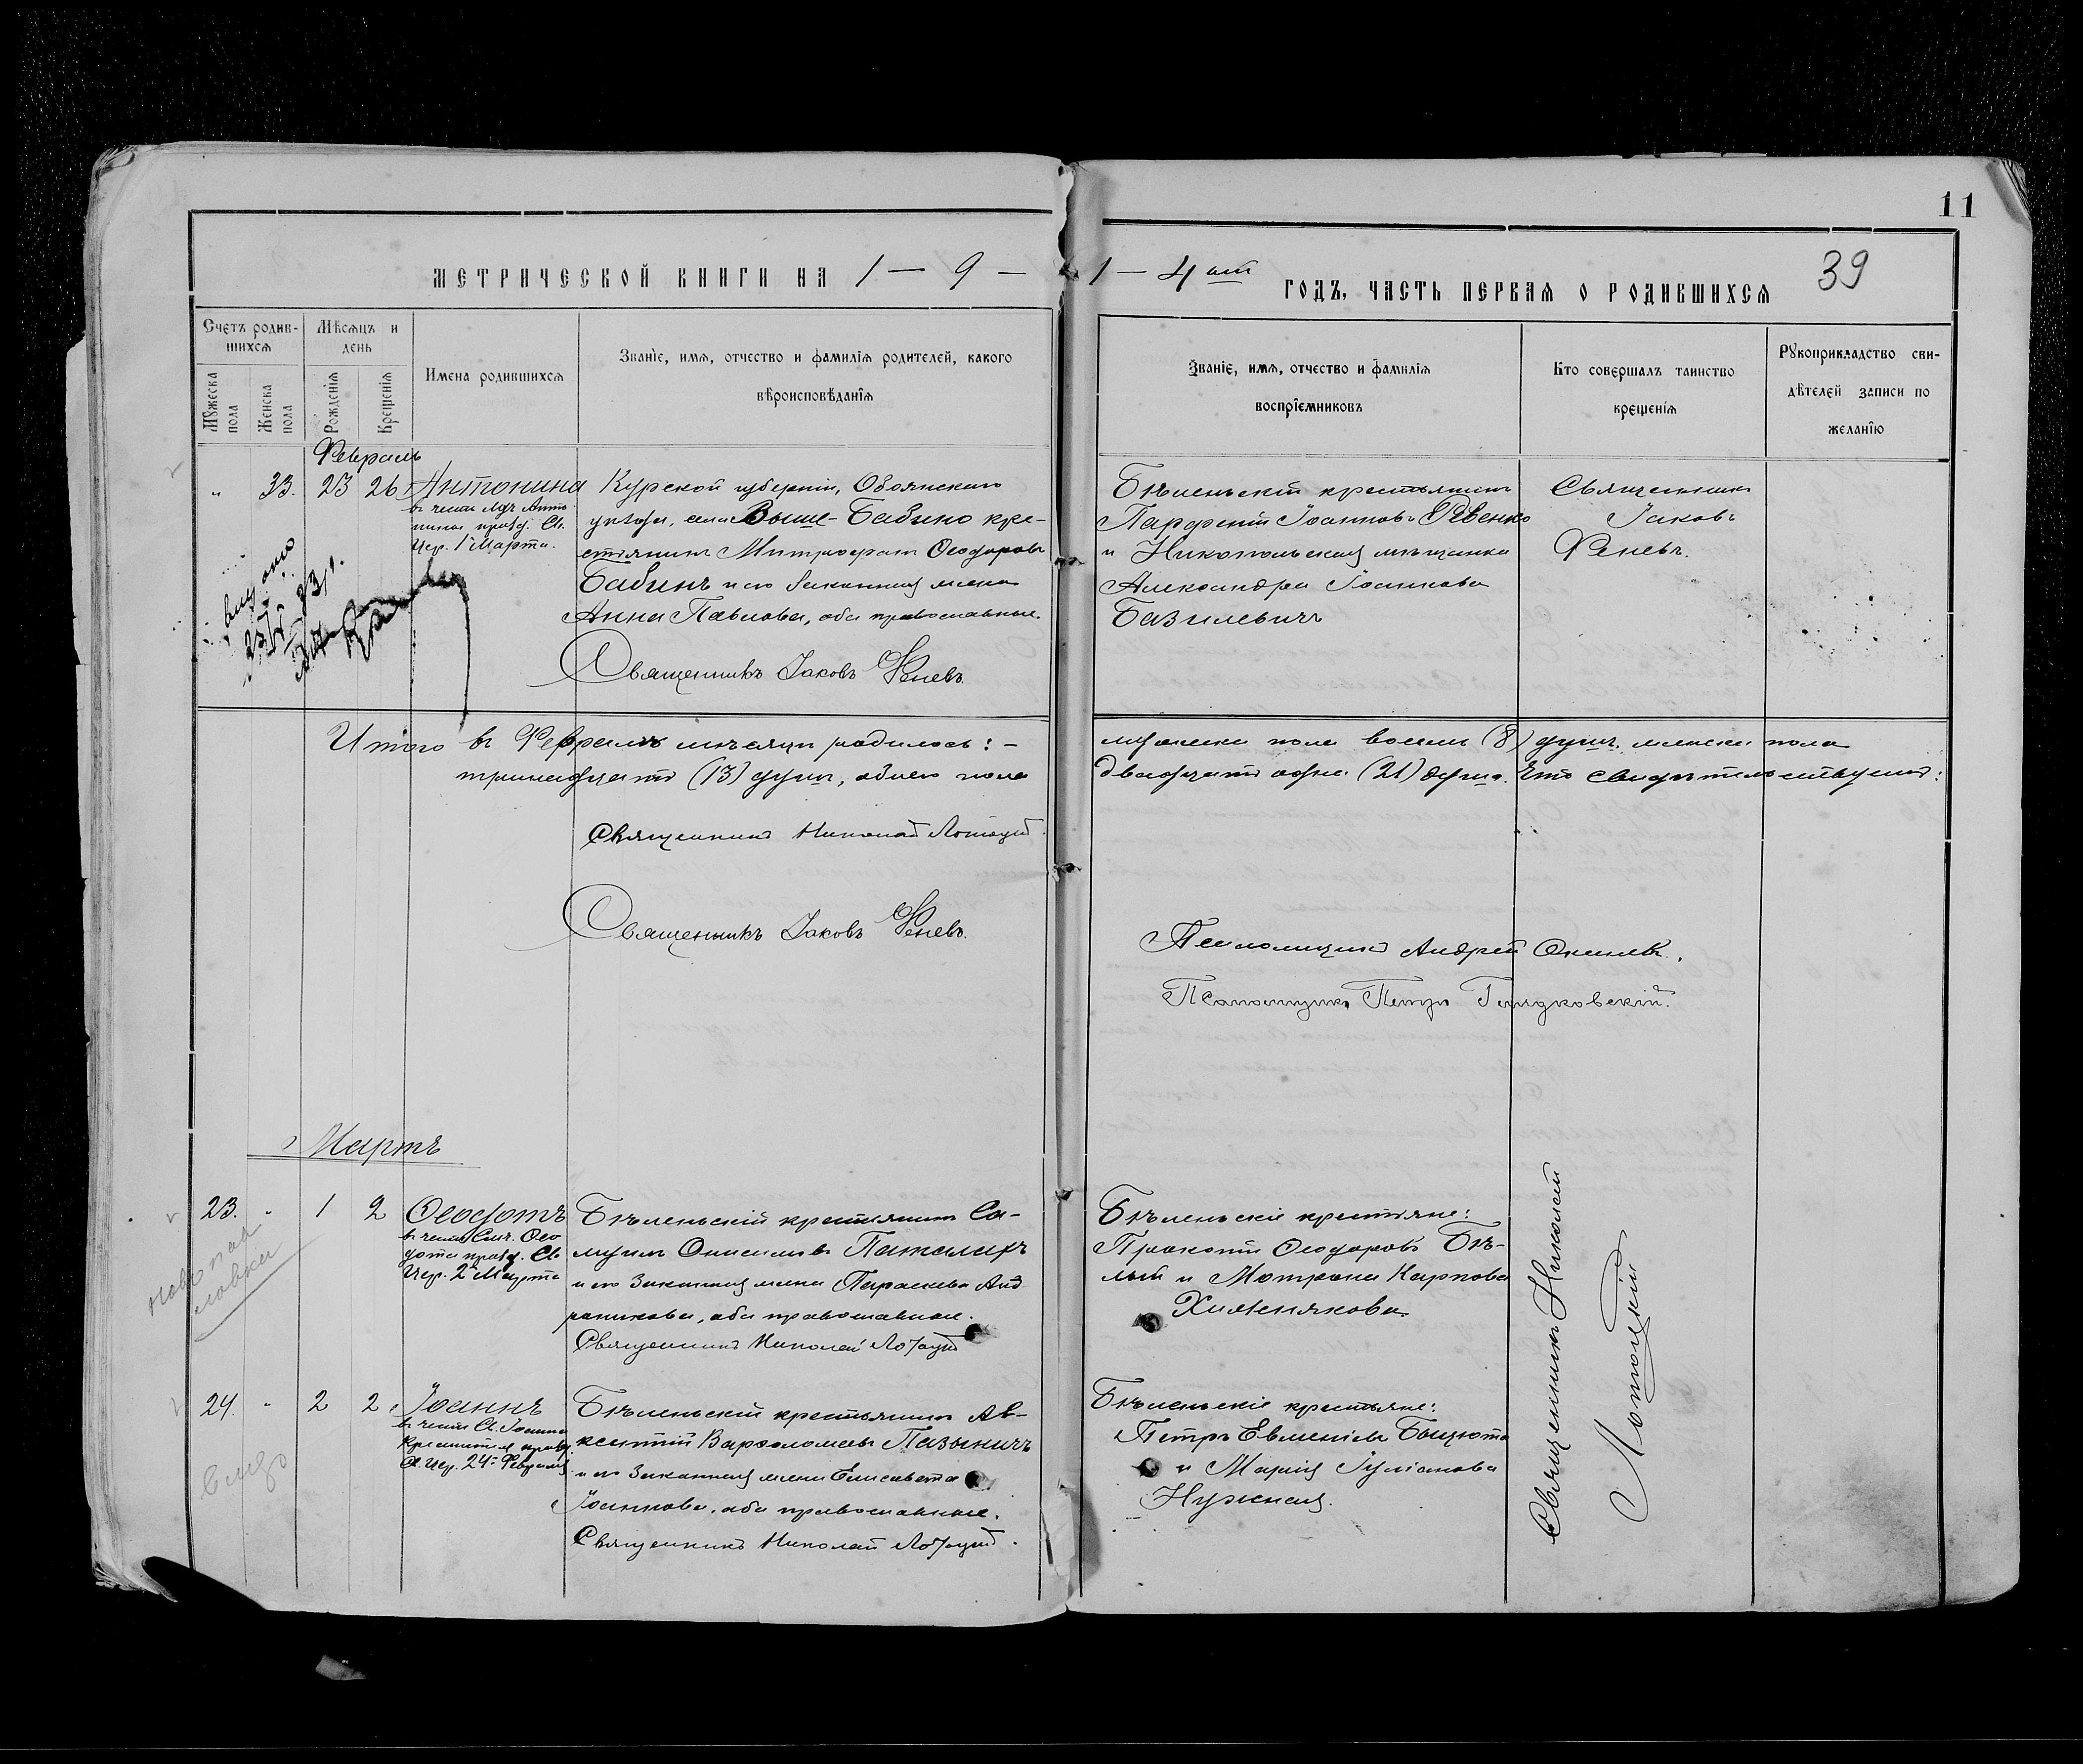 11
МЕТРИЧЕСКОЙ КНИГИ НА 1 — 9 —
1 — 4 ый ГОДЪ, ЧАСТЬ ПЕРВАЯ О РОДИВШИХСЯ
39
Счетъ родившихся
Мѣсяцъ и день
Мужеска пола
Женска пола
Рожденія
Крещенія
Имена родившихся
Званіе, имя, отчество и фамилія родителей, какого
вѣроисповѣданія
Званіе, имя, отчество и фамилія
воспріемниковъ
Кто совершалъ таинство
крещенія
Рукоприкладство сви-
дѣтелей записи по
желанію
Февраль
" 33. 23 26 Антонина
1 Марта.
Курской губерніи, Обоянскаго
уѣзда, села Выше-Бабино кре-
стьянинъ Митрофанъ Ѳеодоровъ
Бабинъ и его законная жена
Анна Павлова, оба православные.
Священникъ Іаковъ Феневъ.
Бѣленьскій крестьянинъ
Парфеній Іоанновъ Ревенко
и Никопольская мѣщанка
Александра Іоаннова
Базилевичъ
Священникъ
Іаковъ
Феневъ.
Итого въ Февралѣ мѣсяцѣ родилось: –
мужеска пола восемь (8) душъ, женска пола
тринадцать (13) душъ, обоего пола
двадцать одна (21) душа. Что свидѣтельствуютъ:
Священникъ Николай Лотоцкій
Священникъ Іаковъ Феневъ.
Псаломщикъ Андрей
Псаломщикъ Петръ
Мартъ
23. " 1 2 Ѳеодотъ
въ честь Свмч. Ѳео
дота празд. Св.
Цер. 2 Марта
Бѣленьскій крестьянинъ Са-
муилъ Онисимовъ Паталахъ
и его законная жена Параскева Анд
роникова, оба православные.
Священникъ Николай Лотоцкій
Бѣленьскіе крестьяне:
Прокопій Ѳеодоровъ Бѣ-
лый и Мотрона Карпова
Хижнякова
24. " 2 2 Іоаннъ
въ честь Св. Іоанна
Крестителя празд.
Св. Цер. 24 Февраля
Бѣленьскій крестьянинъ Ав-
ксентій Варѳоломеевъ Пазыничъ
и его законная жена Елисавета
Іоаннова, оба православные.
Священникъ Николай Лотоцкій.
Бѣленьскіе крестьяне:
Петръ Евменіевъ
и Марія Іуліанова
Нужная.
Священникъ Николай
Лотоцкій